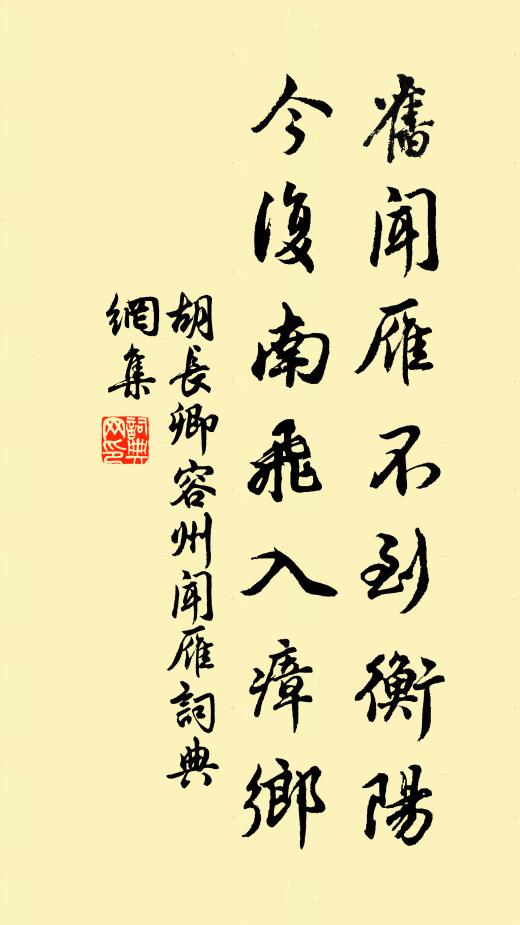 舊聞雁不到衡陽
今復南飛入瘴鄉
胡長卿容州聞雁詞典
網集
詞典網印